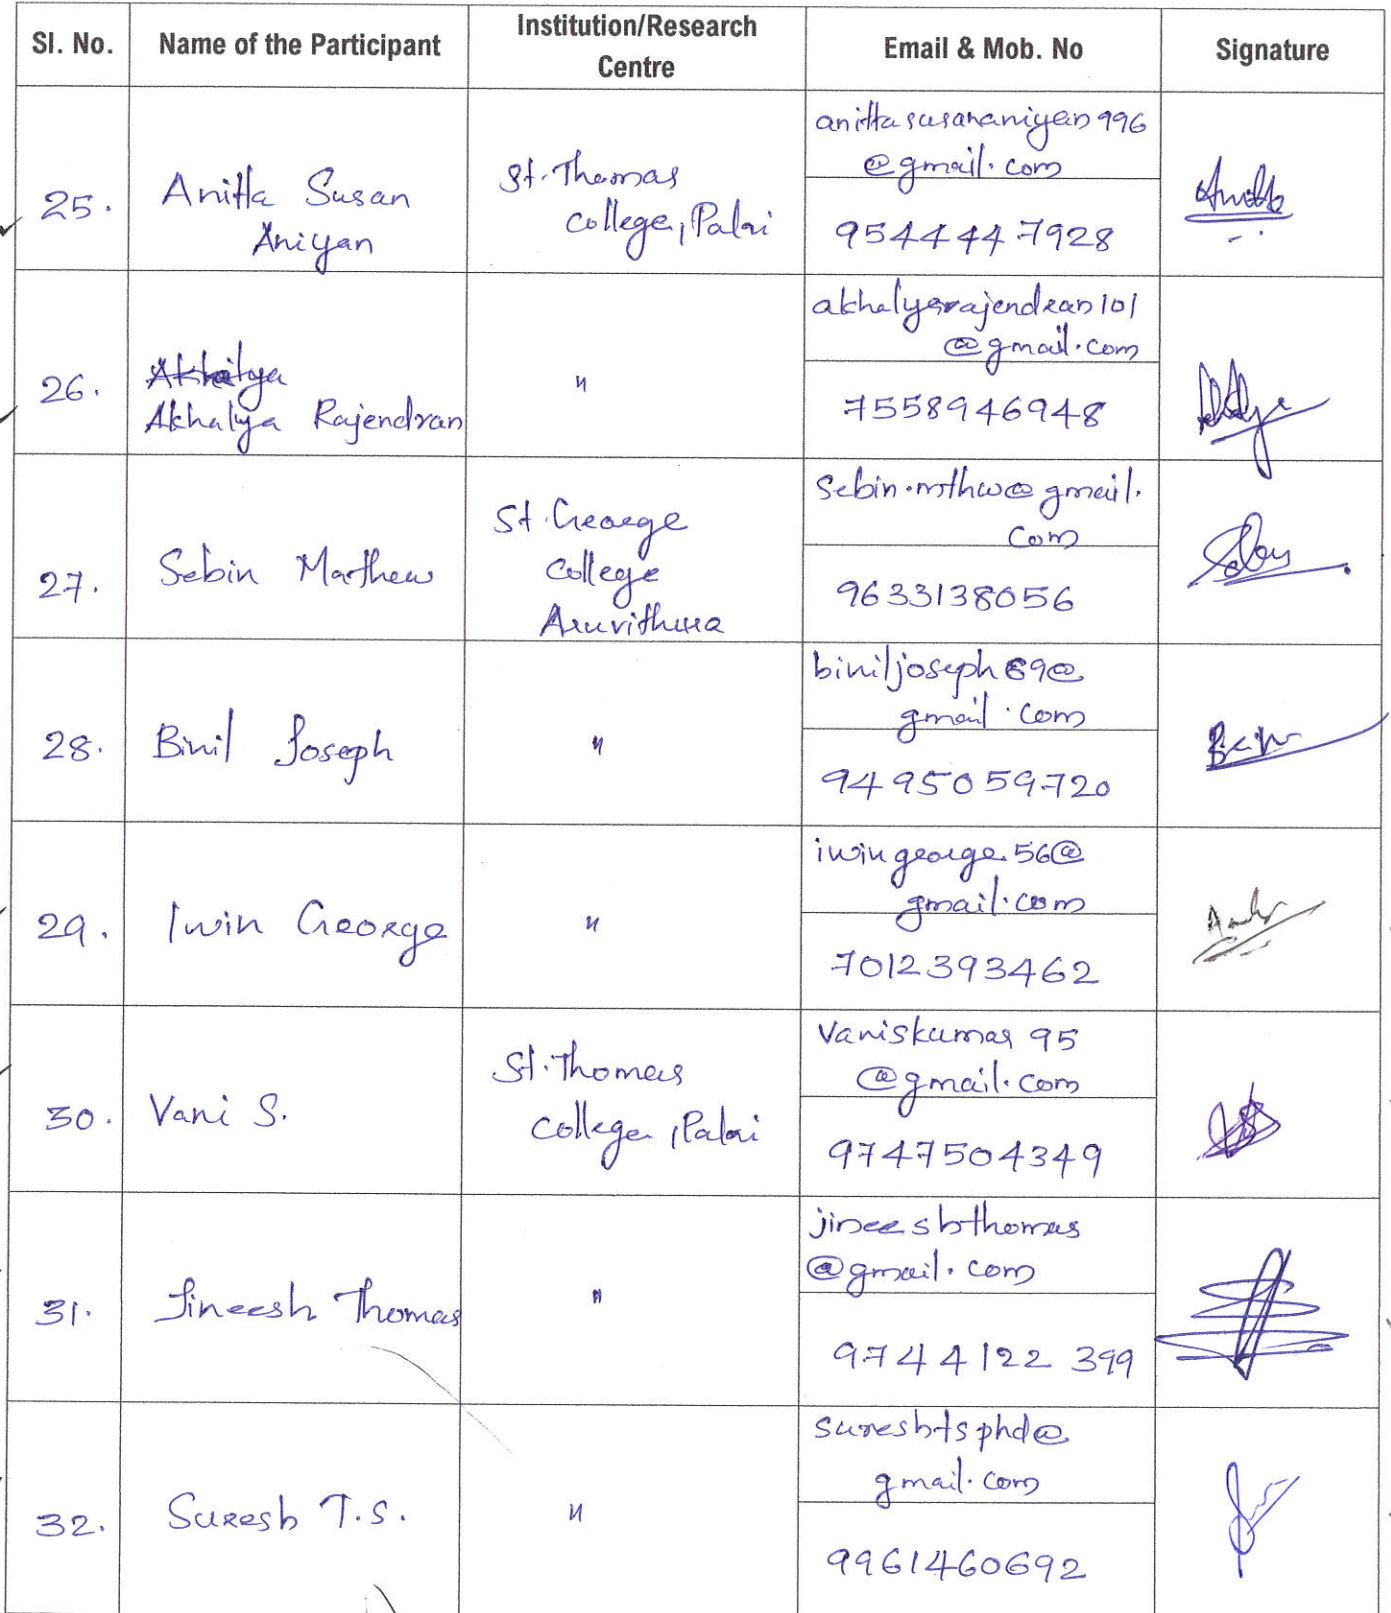 Sl. No. Name of the Participant Institution/Research Centre Email & Mob. No Signature
25. Anitta Susan Aniyan St. Thomas College, Palai anittasusananiyan996@gmail.com
9544447928
26. Akhalya Rajendran " akhalyarajendran101@gmail.com
7558946948
27. Sebin Mathew St. George College Aruvithura sebin.mthw@gmail.com
9633138056
28. Binil Joseph " biniljoseph89@gmail.com
9495059720
29. Iwin George " iwingeorge56@gmail.com
7012393462
30. Vani S. St. Thomas College, Palai Vaniskumar95@gmail.com
9747504349
31. Jineesh Thomas " jineeshthomas@gmail.com
9744122399
32. Suresh T.S. " sureshtsphd@gmail.com
9961460692